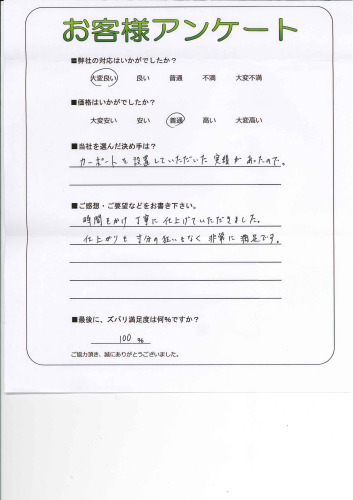 お客様アンケート
■弊社の対応はいかがでしたか?
大変良い 良い 普通 不満 大変不満
■価格はいかがでしたか?
大変安い 安い 普通 高い 大変高い
■当社を選んだ決め手は?
カーポートを設置していただいた実績があったので。
■ご感想・ご要望などをお書き下さい。
時間をかけ丁寧に仕上げていただきました。
仕上がりも寸分の狂いもなく非常に満足です。
■最後に、ズバリ満足度は何%ですか?
100 %
ご協力頂き、誠にありがとうございました。